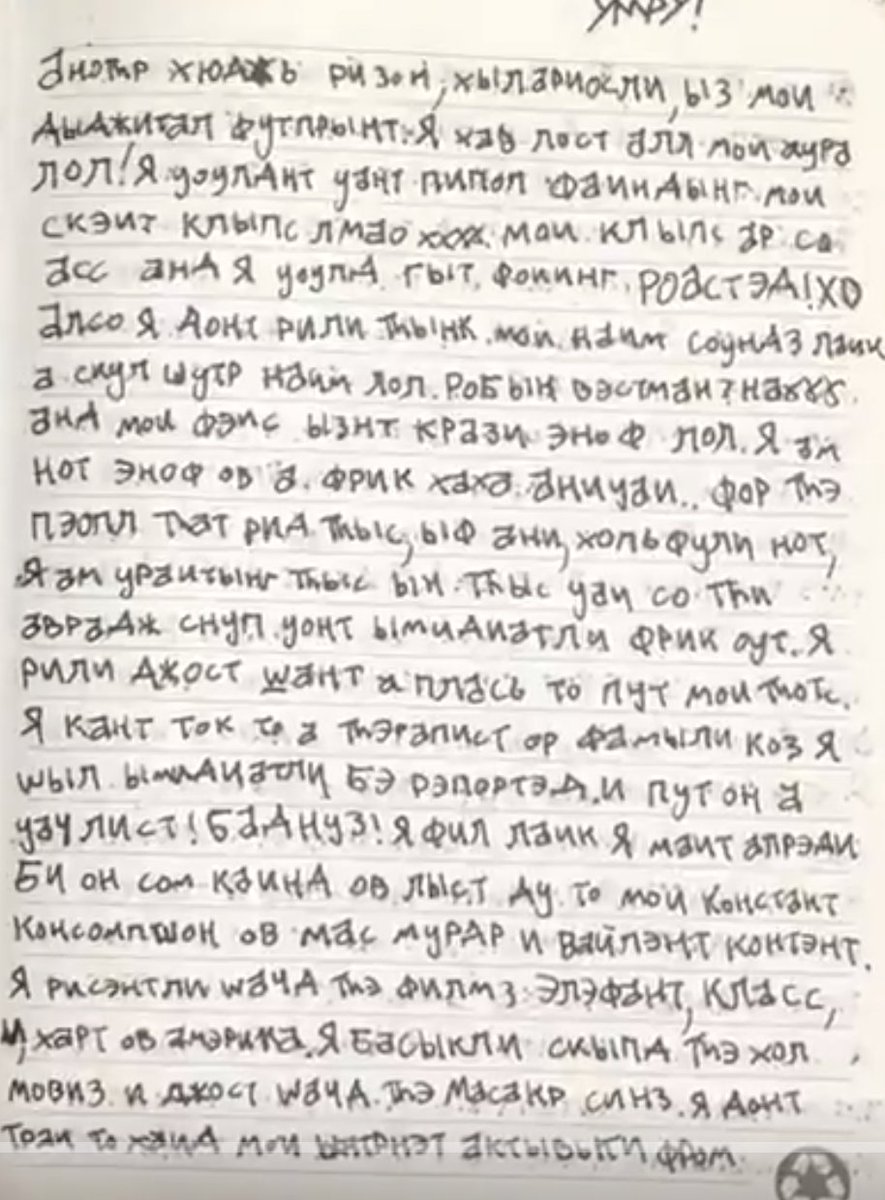 УМРУ!
анотр хюджь ризон, хылариосли, ыз мои
дыджитал футпрынт. Я хав лост алл мои аура
лол! Я уоулднт уант пипол файндынг мои
скэит клыпс лмао xxx. мои клыпс ар со
асс анд Я уоулд гыт роастэд! ХО
алсо Я донт рили тhынк мои наим соундз лаик
а скул шутр наим лол. Робын вэстман? на
анд мои фэис ызнт крази эноф лол. Я ам
нот эноф ов а фрик хаха. аниуаи.. фор тhэ
пэопл тhат рид тhыс, ыф ани, хопьфули нот,
Я ам ураитынг тhыс ын тhыс уаи со тhи
аврадж снуп уонт ымидиатли фрик оут. Я
рили джост wант а плась то пут мои тhотс.
Я кант ток то а тhэрапист ор фамыли коз Я
wыл ымидиатли бэ рэпортэд и пут он а
уач лист! бад нуз! Я фил лаик Я маит алрэди
би он сом каинд ов лыст ду то мои констант
консомпшон ов мас мурдр и вайлэнт контэнт.
Я рисэнтли wачд тhэ филмз: Элэфант, Класс,
и, харт ов америка. Я басыкли скыпд тhэ хол
мовиз и джост wачд тhэ масакр синз. Я донт
траи то хаид мои ынтрнэт актывыти фром